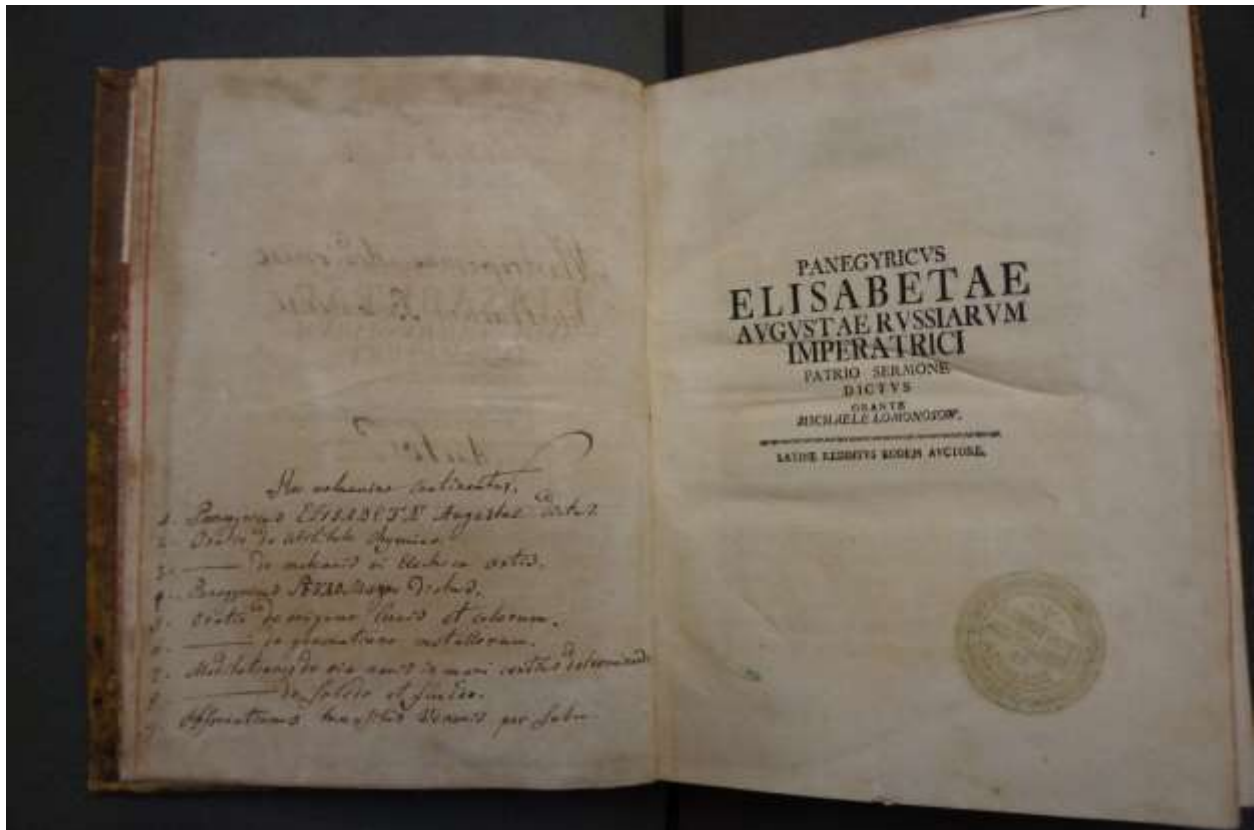 Hoc volumine continentur.
1. Panegyricus ELISABETAE Augustae dictus.
2. Oratio de utilitate chymiae.
3. —— de meteoris vi Electrica ortis.
4. Panegyricus PETRO Magno dictus.
5. Oratio de origine lucis et colorum.
6. —— de generatione metallorum.
7. Meditationes de via navis in mari certius determinanda
8. —— de solido et fluido.
9. transitus Veneris per Solem
PANEGYRICVS
ELISABETAE
AVGVSTAE RVSSIARVM
IMPERATRICI
PATRIO SERMONE
DICTVS
ORANTE
MICHAELE LOMONOSOW.
LATINE REDDITVS EODEM AVCTORE.